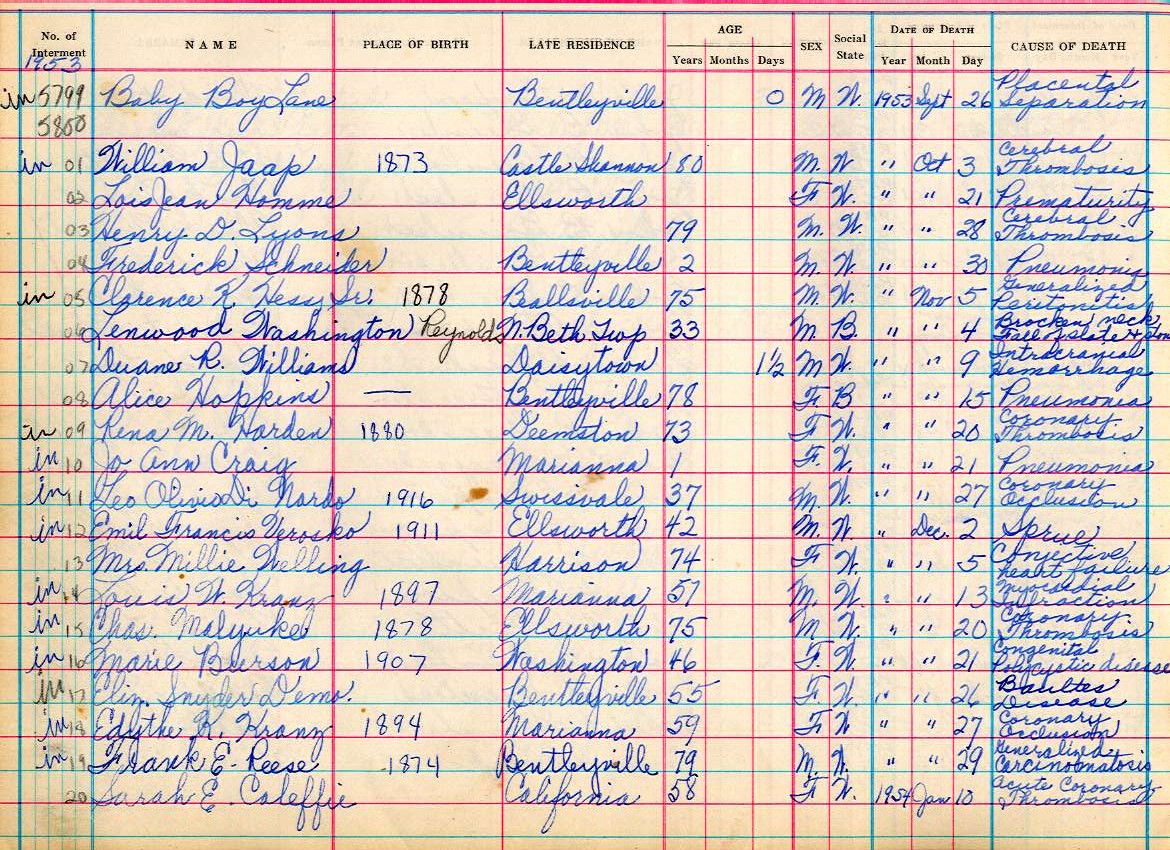 No. of Interment NAME PLACE OF BIRTH LATE RESIDENCE AGE Years Months Days SEX Social State DATE OF DEATH Year Month Day CAUSE OF DEATH
1953
in 5799 Baby Boy Lane Bentleyville 0 M W. 1953 Sept 26 Placental Separation
5800
in 01 William Jaap 1873 Castle Shannon 80 M. W " Oct 3 Cerebral Thrombosis
02 Lois Jean Homme Ellsworth F W. " " 21 Prematurity
03 Henry D. Lyons 79 M. W. " " 28 Cerebral Thrombosis
04 Frederick Schneider Bentleyville 2 M. W. " " 30 Pneumonia
in 05 Clarence K. Hess Sr. 1878 Beallsville 75 M. W. " Nov 5 Generalized Peritonitis
06 Lenwood Washington Reynolds N. Beth. Twp 33 M. B. " " 4 Brocken neck Fall of slate + stone
07 Duane R. Williams Daisytown 1½ M W. " " 9 Intracranial Hemorrhage
08 Alice Hopkins — Bentleyville 78 F B " " 15 Pneumonia
in 09 Rena M. Harden 1880 Deemston 73 F W. " " 20 Coronary Thrombosis
in 10 Jo Ann Craig Marianna 1 F. W. " " 21 Pneumonia
in 11 Leo Olivio Di Nardo 1916 Swissvale 37 M. W. " " 27 Coronary Occlusion
in 12 Emil Francis Verosko 1911 Ellsworth 42 M. W. " Dec. 2 Sprue
13 Mrs. Millie Welling Harrison 74 F W. " " 5 Conjective heart failure
in 14 Louis W. Kranz 1897 Marianna 57 M. W. " " 13 Myocardial Infraction
in 15 Chas. Malyuke 1878 Ellsworth 75 M W. " " 20 Coronary Thrombosis
in 16 Marie Burson 1907 Washington 46 F. W. " " 21 Congenital Polycystic disease
in 17 Eliz. Snyder Demo. Bentleyville 55 F W. " " 26 Baultes Disease
in 18 Edythe K. Kranz 1894 Marianna 59 F W " " 27 Coronary Occlusion
in 19 Frank E. Reese 1874 Bentleyville 79 M. W. " " 29 Generalized Carcinomatosis
20 Sarah E. Caleffie California 58 F W. 1954 Jan 10 Acute Coronary Thrombosis